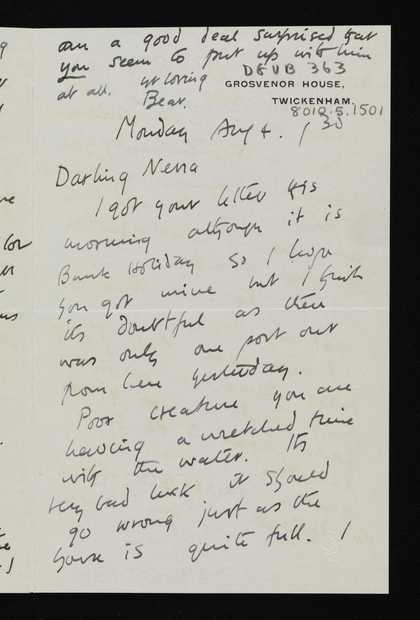 am a good deal surprised that
you seem to put up with him
at all. yr loving
Bear.
DGVB 363
GROSVENOR HOUSE,
TWICKENHAM.
8010.5.1501
Monday Aug 4. /30
Darling Nessa
I got your letter this
morning although it is
Bank Holiday so I hope
you got mine but I think
its doubtful as there
was only one post out
from here yesterday.
Poor creature you are
having a wretched time
with the water. Its
very bad luck it should
go wrong just as the
house is quite full. I